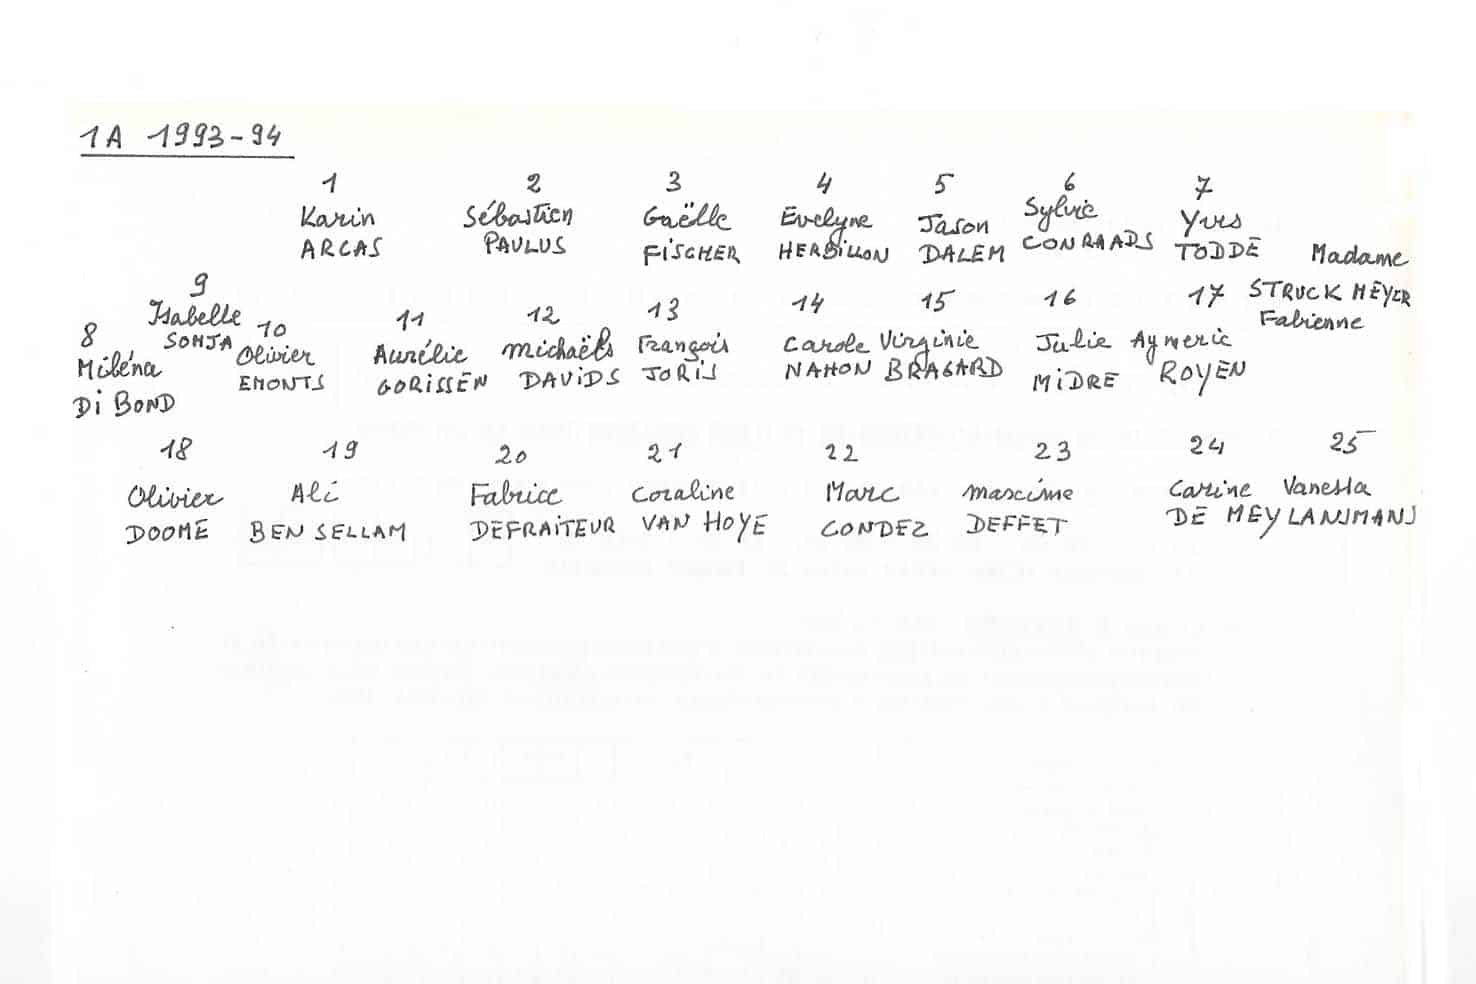 1A 1993-94
1 2 3 4 5 6 7
Karin Sébastien Gaëlle Evelyne Jason Sylvie Yves
ARCAS PAULUS FISCHER HERBILLON DALEM CONRAADS TODDE Madame
9 13 14 15 16 17 STRUCKMEYER
8 Isabelle 10 11 12 Fabienne
SONJA Olivier Aurélie Michaël François Carole Virginie Julie Aymeric
Miléna EMONTS GORISSEN DAVIDS JORIS NAHON BRAGARD MIDRE ROYEN
Di BOND
18 19 20 21 22 23 24 25
Olivier Ali Fabrice Coraline Marc Maxime Carine Vanessa
DOOME BEN SELLAM DEFRAITEUR VAN HOYE CONDEZ DEFFET DE MEYLANSMANS